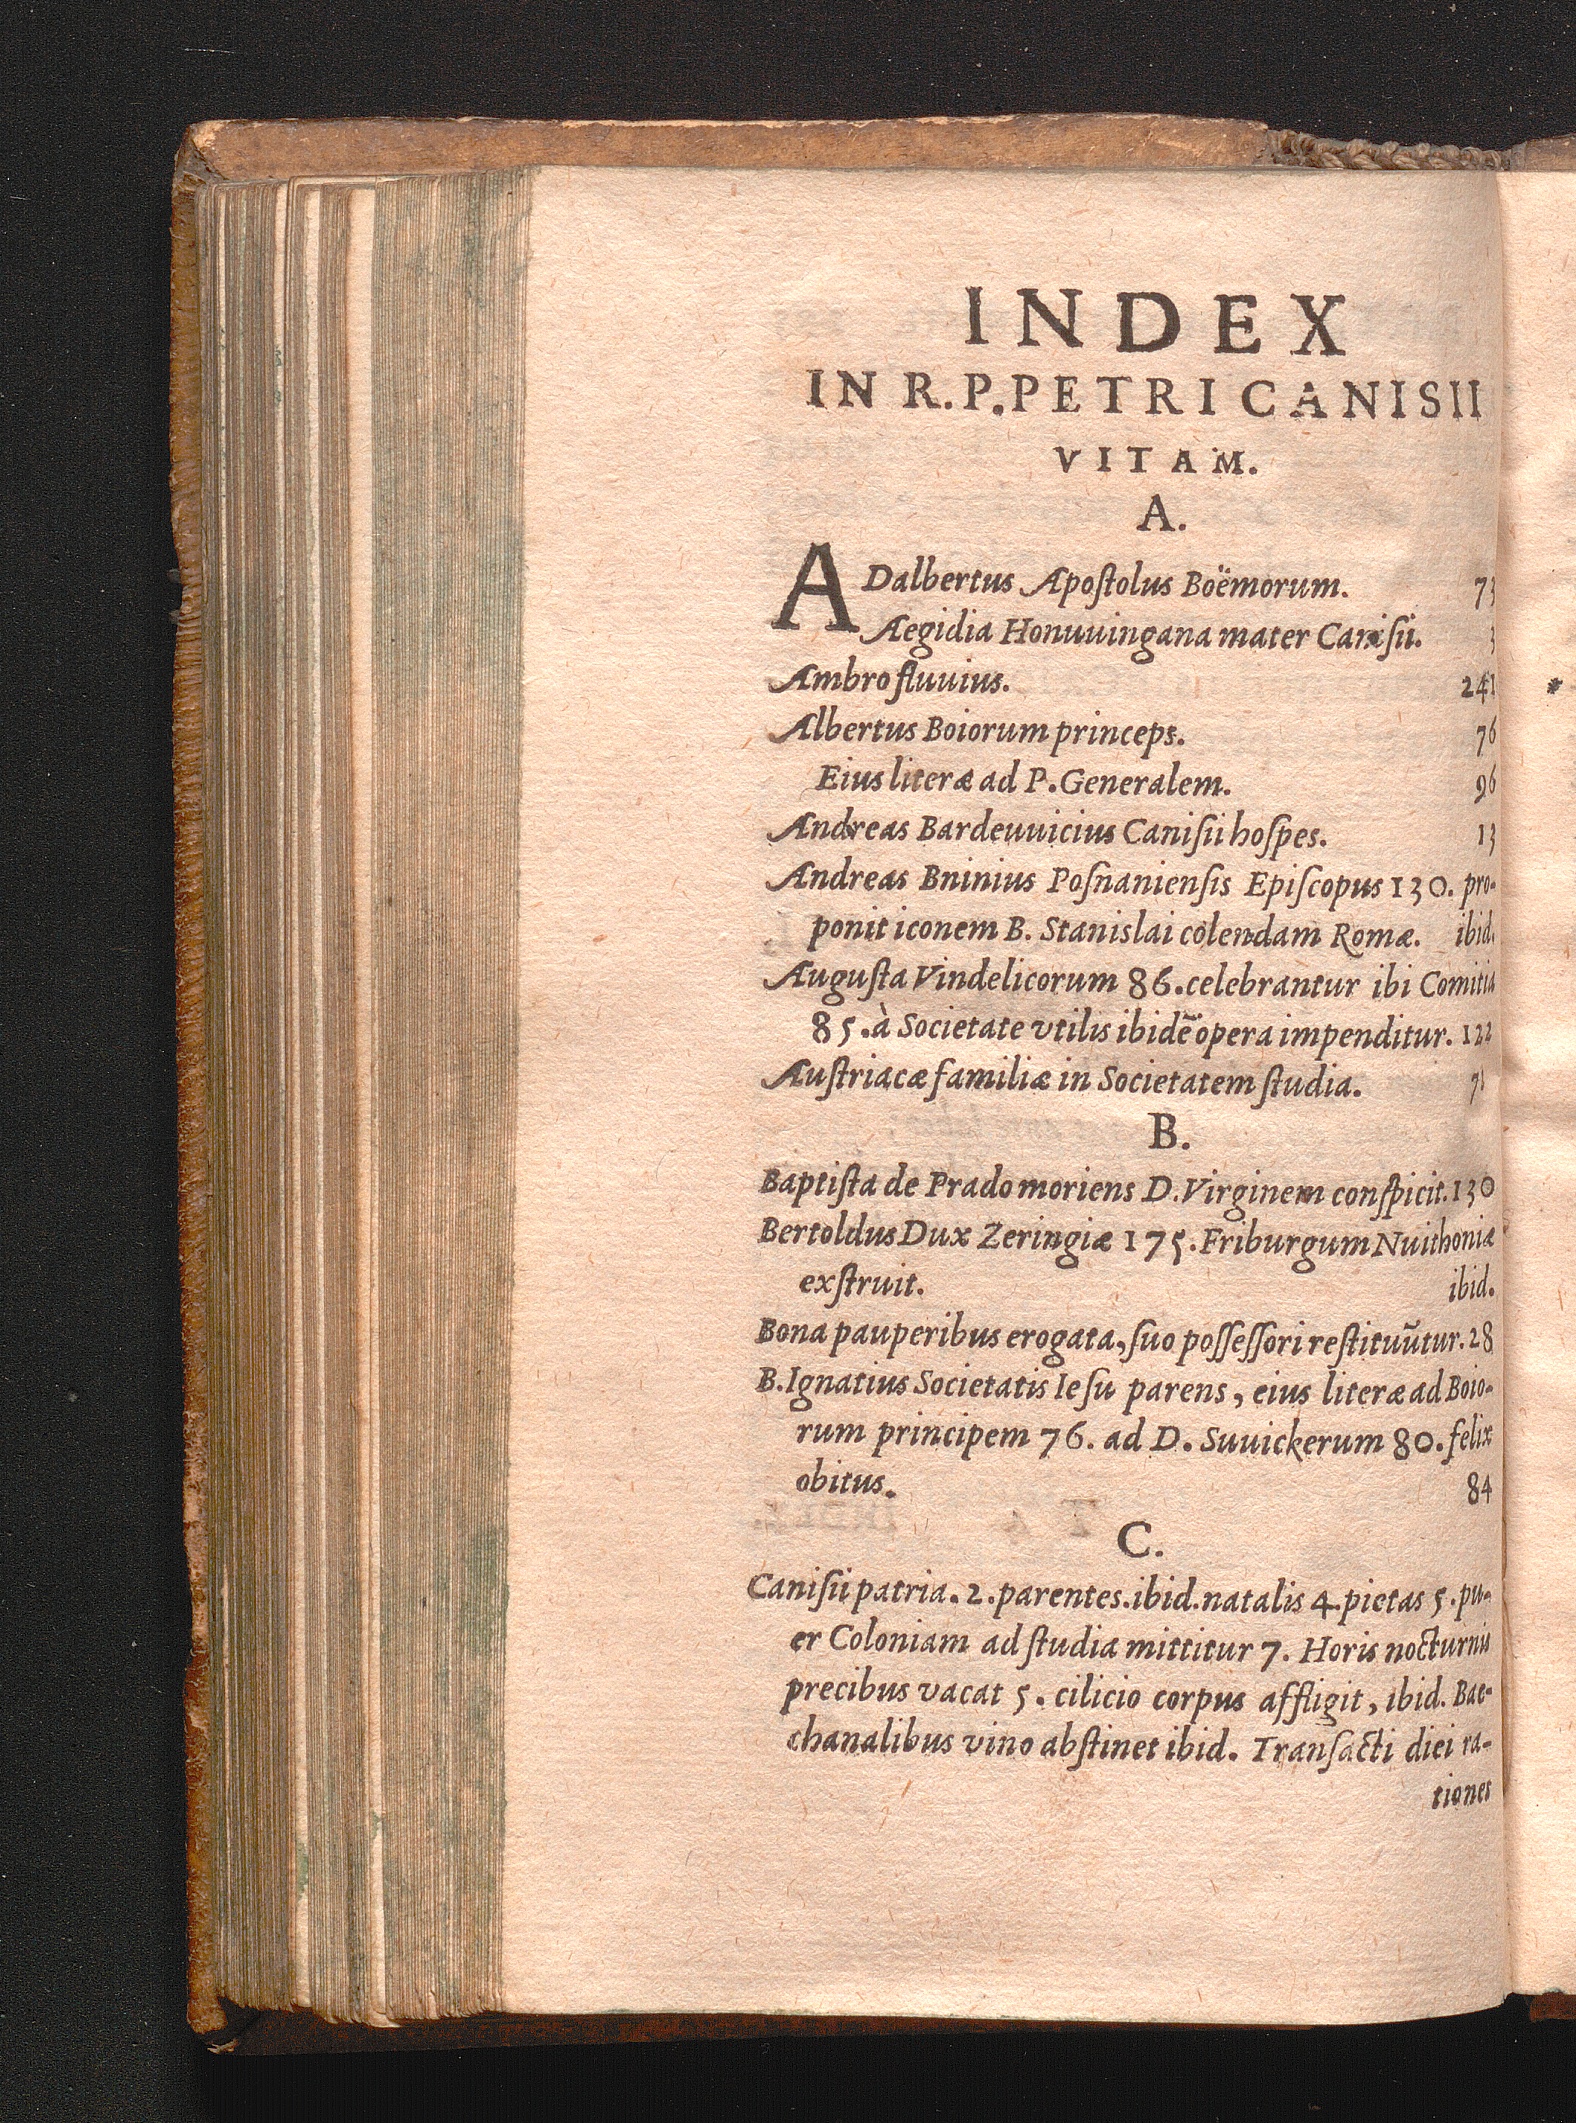 INDEX
IN R.P. PETRI CANISII
VITAM.
A.
ADalbertus Apoſtolus Boëmorum. 73
Aegidia Honuuingana mater Caniſii. 3
Ambro fluuius. 241
Albertus Boiorum princeps. 76
Eius literæ ad P. Generalem. 96
Andreas Bardeuuicius Caniſii hoſpes. 13
Andreas Bninius Poſnanienſis Epiſcopus 130. pro-
ponit iconem B. Stanislai colendam Romæ. ibid.
Auguſta Vindelicorum 86. celebrantur ibi Comitia
85. à Societate vtilis ibidē opera impenditur. 122
Auſtriacæ familiæ in Societatem ſtudia. 71
B.
Baptiſta de Prado moriens D. Virginem conſpicit. 130
Bertoldus Dux Zeringiæ 175. Friburgum Nuithoniæ
exſtruit. ibid.
Bona pauperibus erogata, ſuo poſſeſſori reſtituūtur. 28
B. Ignatius Societatis Ieſu parens, eius literæ ad Boio-
rum principem 76. ad D. Suuickerum 80. felix
obitus. 84
C.
Caniſii patria. 2. parentes. ibid. natalis 4. pietas 5. pu-
er Coloniam ad ſtudia mittitur 7. Horis nocturnis
precibus vacat 5. cilicio corpus affligit, ibid. Bac-
chanalibus vino abſtinet ibid. Tranſacti diei ra-
tiones